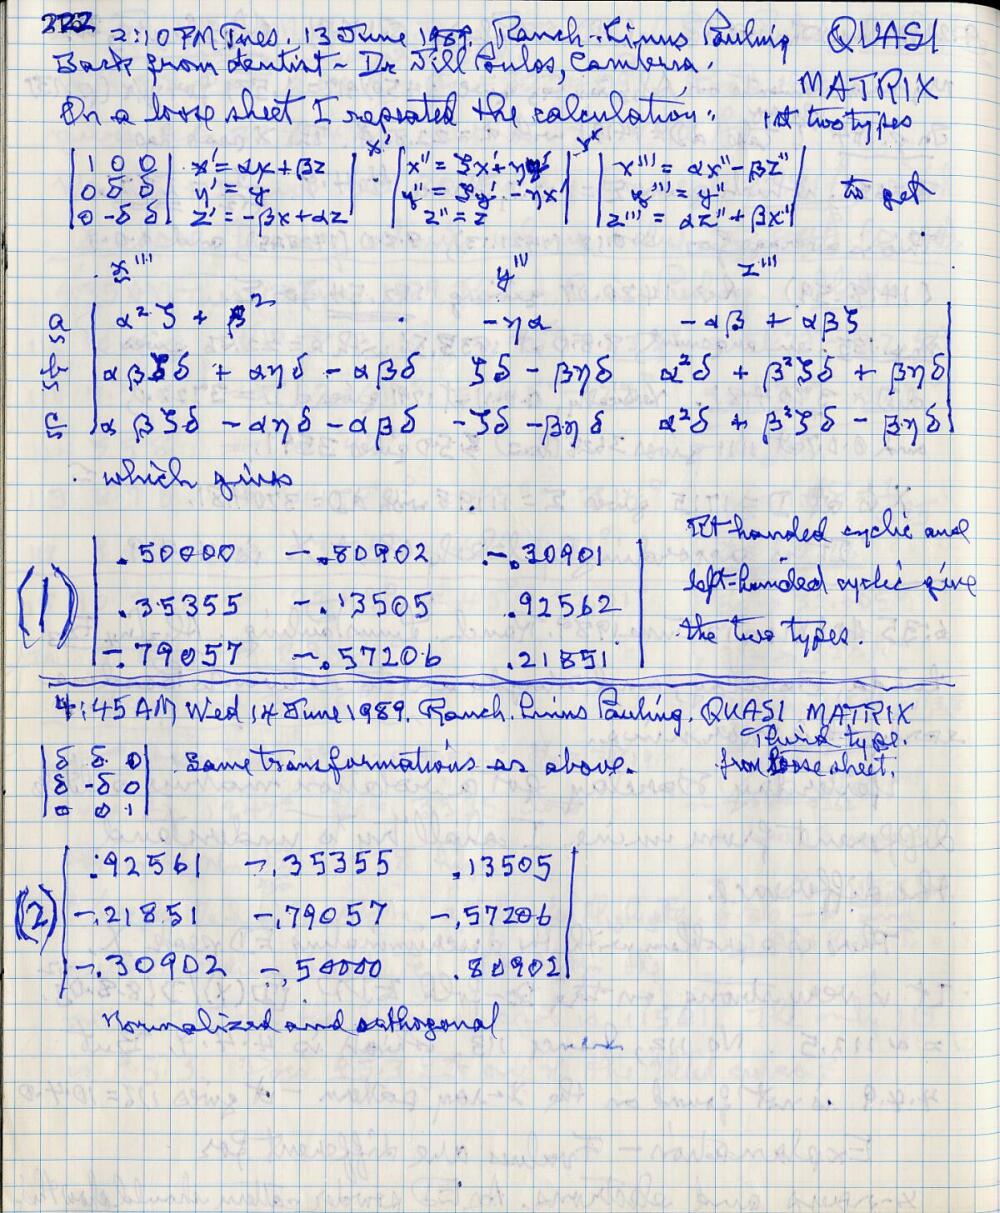 222 2:10 PM Tues. 13 June 1989. Ranch. Linus Pauling QUASI
Back from dentist - Dr Jill Poulos, Cambria. MATRIX
On a loose sheet I repeated the calculation: 1st two types
| 1 0 0 | x' = αx + βz | x' | x'' = ζx' + ηy' | y* | x''' = αx'' - βz'' |
| 0 δ δ | y' = y | y'' = ζy' - ηx' | y''' = y'' | to get
| 0 -δ δ | z' = -βx + αz | z'' = z | z''' = αz'' + βx'' |
x''' y''' z'''
a | α²ζ + β² -ηα -αβ + αβζ |
b | αβζδ + αηδ - αβδ ζδ - βηδ α²δ + β²ζδ + βηδ |
c | αβζδ - αηδ - αβδ -ζδ - βηδ α²δ + β²ζδ - βηδ |
which gives
(1) | .50000 -.80902 -.30901 |
| .35355 -.13505 .92562 |
| -.79057 -.57206 .21851 |
Rt-handed cyclic and
left-handed cyclic give
the two types.
4:45 AM Wed 14 June 1989. Ranch. Linus Pauling. QUASI MATRIX
Third type.
| δ δ 0 | Same transformations as above. from loose sheet.
| δ -δ 0 |
| 0 0 1 |
(2) | .92561 -.35355 .13505 |
| -.21851 -.79057 -.57206 |
| -.30902 -.50000 .80902 |
Normalized and orthogonal